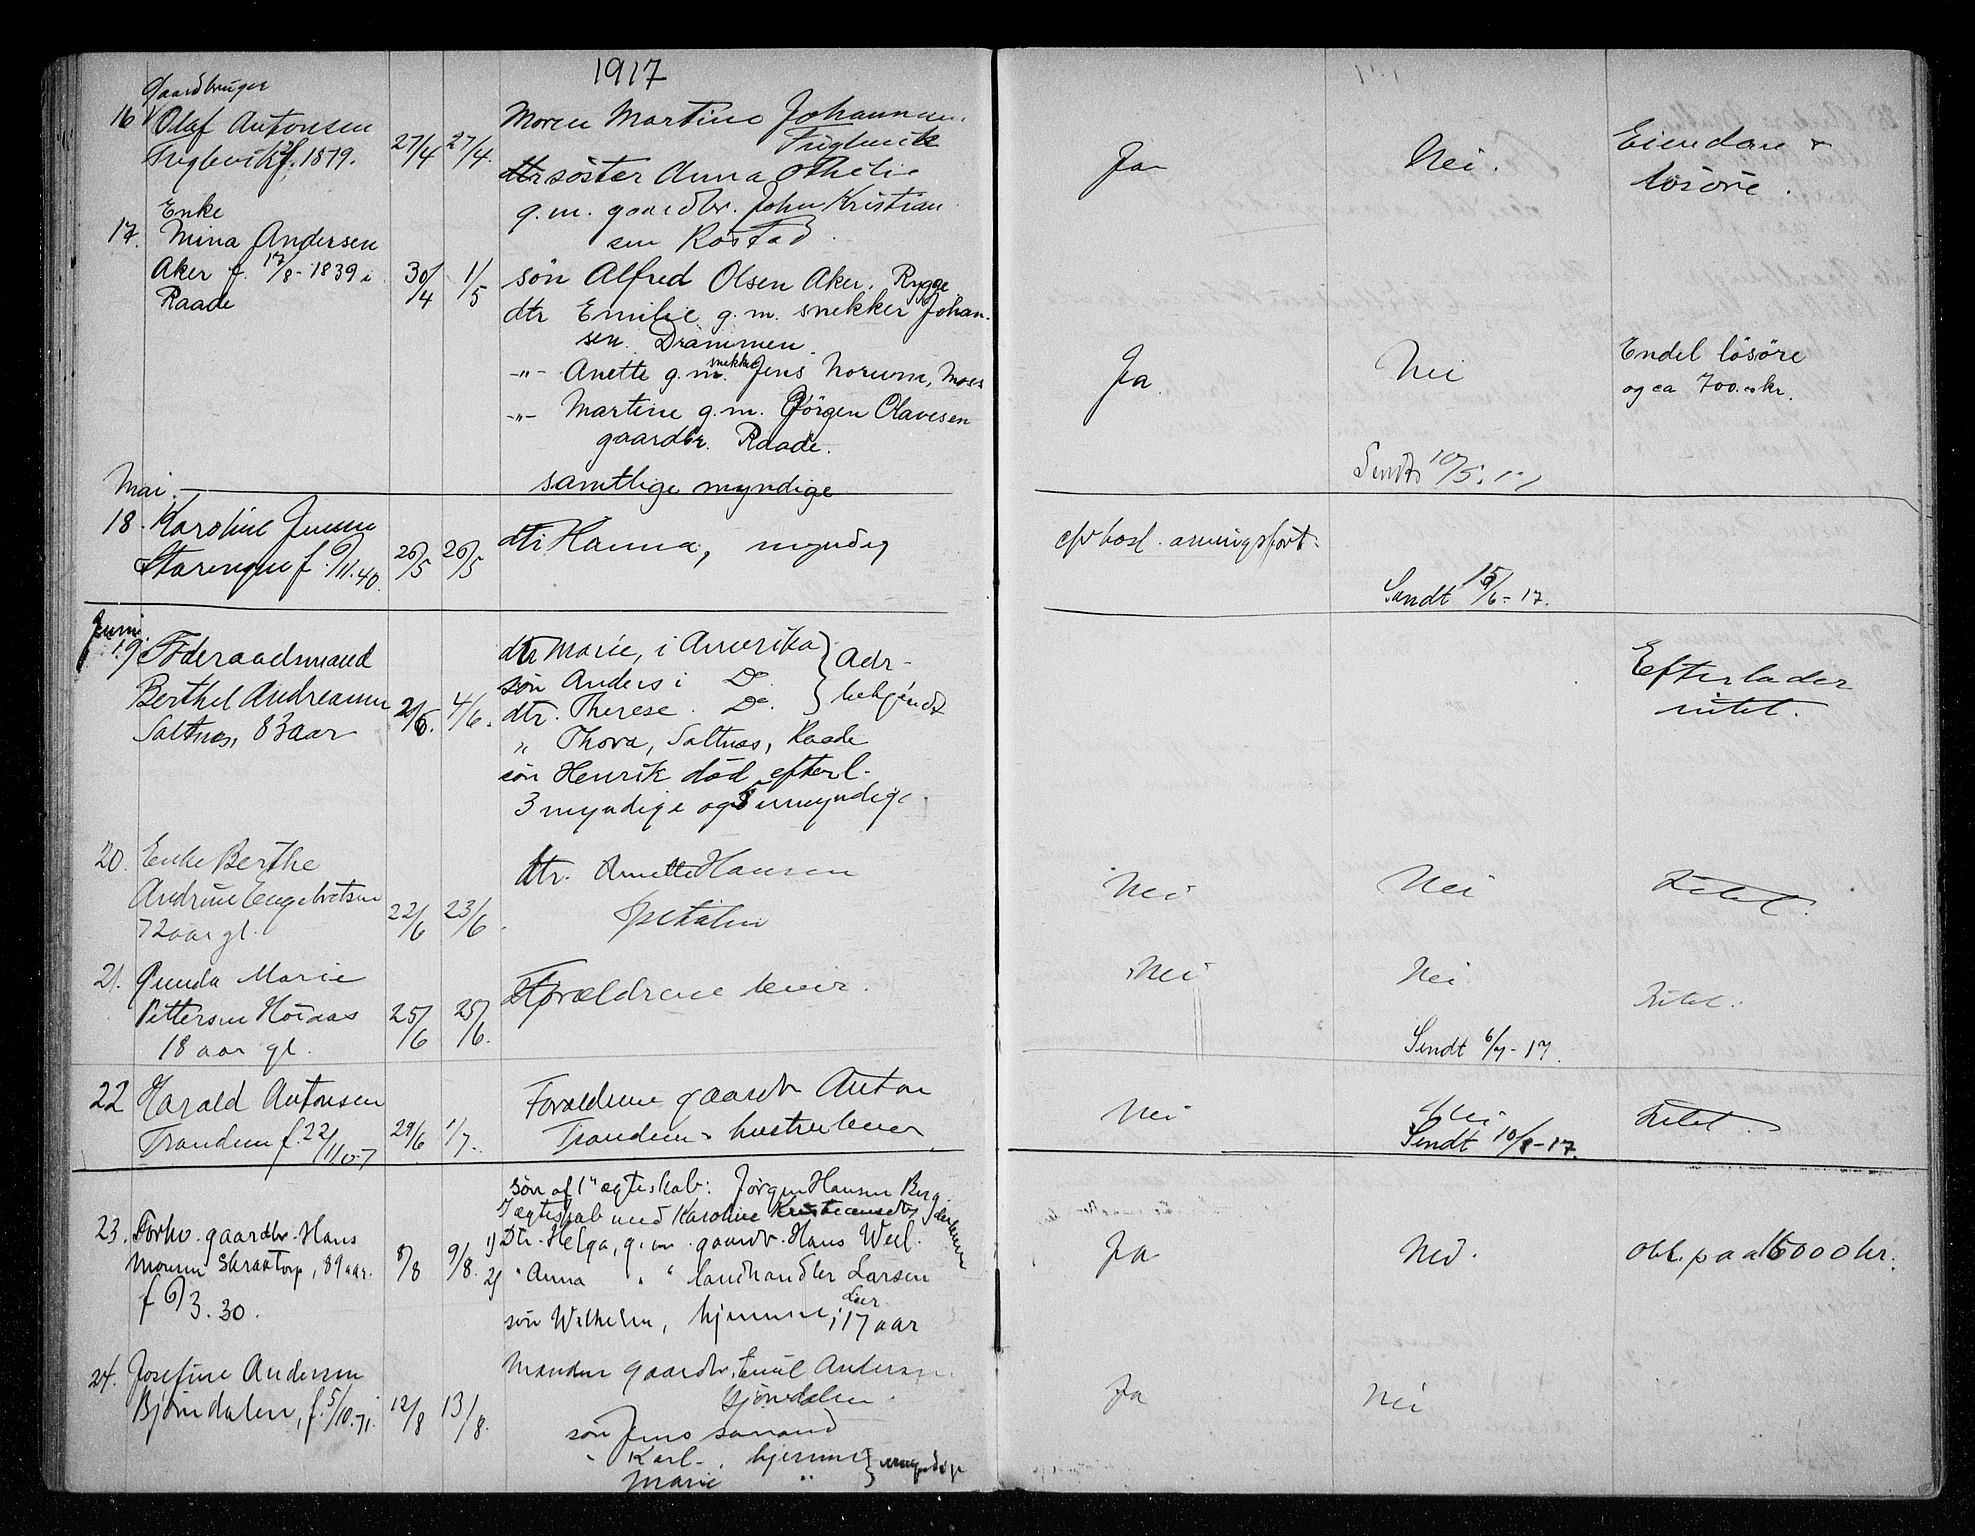 1917
Gaardbruger
16 Olaf Antonsen
Fuglevik f. 1879.
27/4 27/4.
Moren Martine Johannesen
Fuglevik
søster Anna Othelie
g.m. gaardbr. John Kristian
sen Rostad.
Ja
Nei.
Eiendom &
løsøre.
Enke
17. Mina Andersen
Aker f. 17/8-1839 i
Raade
30/4 1/5
søn Alfred Olsen Aker, Rygge
dtr Emilie g.m. snekker Johan-
sen. Drammen.
-"- Anette g.m. snekker Jens Norum, Moss
-"- Martine g.m. Jørgen Olavesen
gaardbr. Raade.
samtlige myndige
Ja.
Nei
Endel løsøre
og ca 700.- kr.
Sendt 10/5. 17
Mai.
18. Karoline Jensen
f. 6/11.40.
26/5 26/5
dtr Hanna, myndig
Sendt 15/6-17.
Juni.
19 Føderaadsmand
Berthel Andreassen
Saltnes, 83 aar
4/6.
dtr Marie, i Amerika } Adr-
søn Anders i Do. } ubekjendt
dtr. Therese. Do.
„ Thora, Saltnes, Raade
søn Henrik død efterl.
3 myndige og 5 umyndige.
Efterlader
intet.
20. Enke Berthe
Andrine Engebretsen
72 aar gl.
22/6 23/6.
dtr. Anette Hansen
Nei
Nei
Intet.
21. Gunda Marie
Pettersen Høiaas
18 aar gl.
25/6 25/6.
Forældrene lever.
Nei
Nei.
Intet.
Sendt 6/7-17.
22 Harald Antonsen
Trandem f. 22/11 07
29/6 1/7.
Forældrene gaardbr Anton
Trandem & hustru lever
Nei
Nei
Intet.
Sendt 10/8-17.
23. Forhv. gaardbr. Hans
Monsen Skraatorp, 89 aar.
f 6/3.30.
8/8 9/8.
søn af 1" ægteskab: Jørgen Hansen Berg.
ægteskab med Karoline Kristiansdtr
1) Dtr. Helga, g.m. gaardbr. Hans
2) " Anna " " landhandler Larsen
søn Wilhelm, hjemme, 17 aar
Ja
Nei.
Obl. paa 16000 kr.
24. Josefine Andersen
Bjørndalen, f. 5/10.71.
12/8 13/8.
Manden gaardbr. Emil Andersen.
Bjørndalen.
søn Jens
" Karl -. hjemme } umyndige
Marie "
Ja
Nei